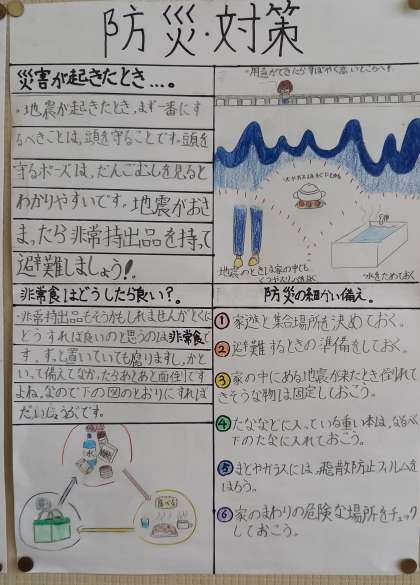 防災・対策
災害が起きたとき…。
・地震が起きたとき、まず一番にす
るべきことは、頭を守ることです。頭を
守るポーズは、だんごむしを見ると
わかりやすいです。地震がおさ
まったら非常持出品を持って
避難しましょう!
・用意ができたらすばやく高いところへ。
地震のときは家の中でも
くつやスリッパをはく
水をためておく
非常食はどうしたら良い?。
・非常持出品もそうかもしれませんがとくに
どうすれば良いのと思うのは非常食で
す。ずっと置いていても腐りますし、かと
いって備えてなかったらあとあと面倒です
よね。なので下の図のとおりにすれば
だいじょうぶです。
水
食べる
防災の細かい備え。
① 家族と集合場所を決めておく。
② 避難するときの準備をしておく。
③ 家の中にある地震が来たとき倒れて
きそうな物は固定しておこう。
④ たななどに入っている重い本は、なるべく
下のたなに入れておこう。
⑤ まどやガラスには、飛散防止フィルムを
はろう。
⑥ 家のまわりの危険な場所をチェック
しておこう。